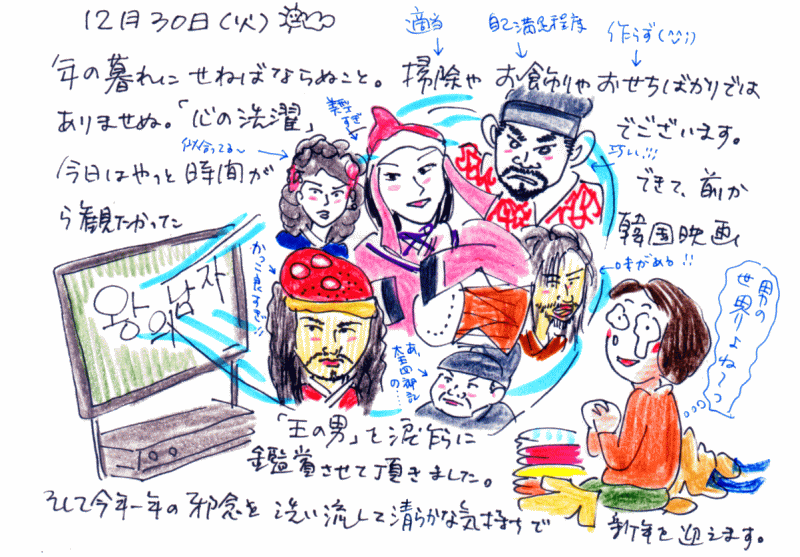 12月30日(火)
適当
自己満足程度
作らず(^^;)
年の暮れに せねばならぬこと。掃除や お飾りや おせちばかりでは
ありませぬ。「心の洗濯」でございます。
今日はやっと 時間ができて、前か
ら観たかった韓国映画
美型すぎ〜
似合ってる〜
巧い!!!
かっこ良すぎ!!
味がある!!
あ、大長今の
왕의 남자
男の世界りよね〜っ
「王の男」を涙乍らに
鑑賞させて頂きました。
そして今年一年の邪念を 洗い流して清らかな気持ちで 新年を迎えます。